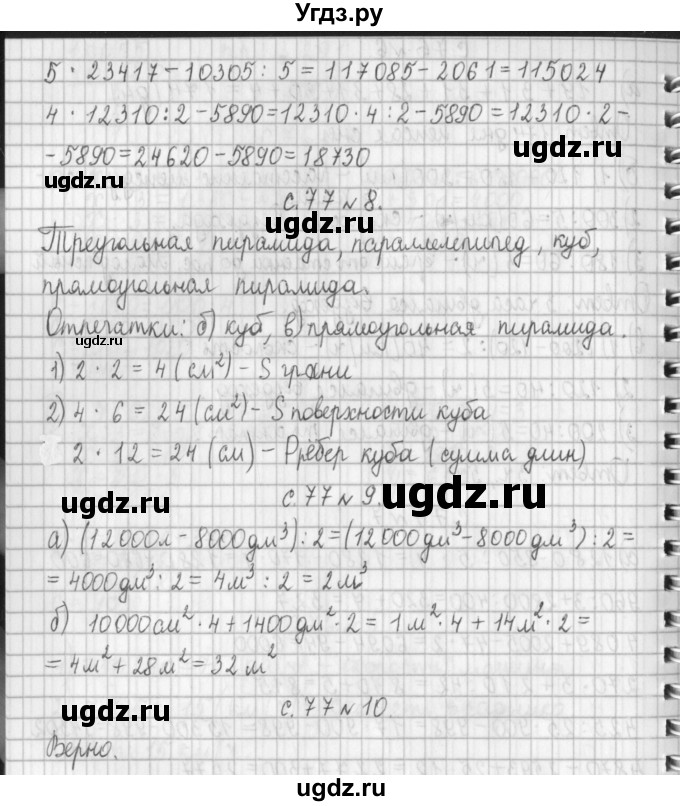 Угдз.ру
5 · 23417 - 10305 : 5 = 117085 - 2061 = 115024
4 · 12310 : 2 - 5890 = 12310 · 4 : 2 - 5890 = 12310 · 2 -
ugdz.ru
- 5890 = 24620 - 5890 = 18730
ugdz.ru
с. 77 № 8.
ugdz.ru
Треугольная пирамида, параллелепипед, куб,
прямоугольная пирамида.
Отпечатки: б) куб, в) прямоугольная пирамида.
ugdz.ru
1) 2 · 2 = 4 (см²) - S грани
2) 4 · 6 = 24 (см²) - S поверхности куба
2 · 12 = 24 (см) - P рёбер куба (сумма длин)
ugdz.ru
с. 77 № 9.
ugdz.ru
а) (12000л - 8000дм³) : 2 = (12000дм³ - 8000дм³) : 2 =
= 4000дм³ : 2 = 4м³ : 2 = 2м³
б) 10000см² · 4 + 1400дм² · 2 = 1м² · 4 + 14м² · 2 =
= 4м² + 28м² = 32м²
ugdz.ru
с. 77 № 10.
ugdz.ru
Верно.
ugdz.ru